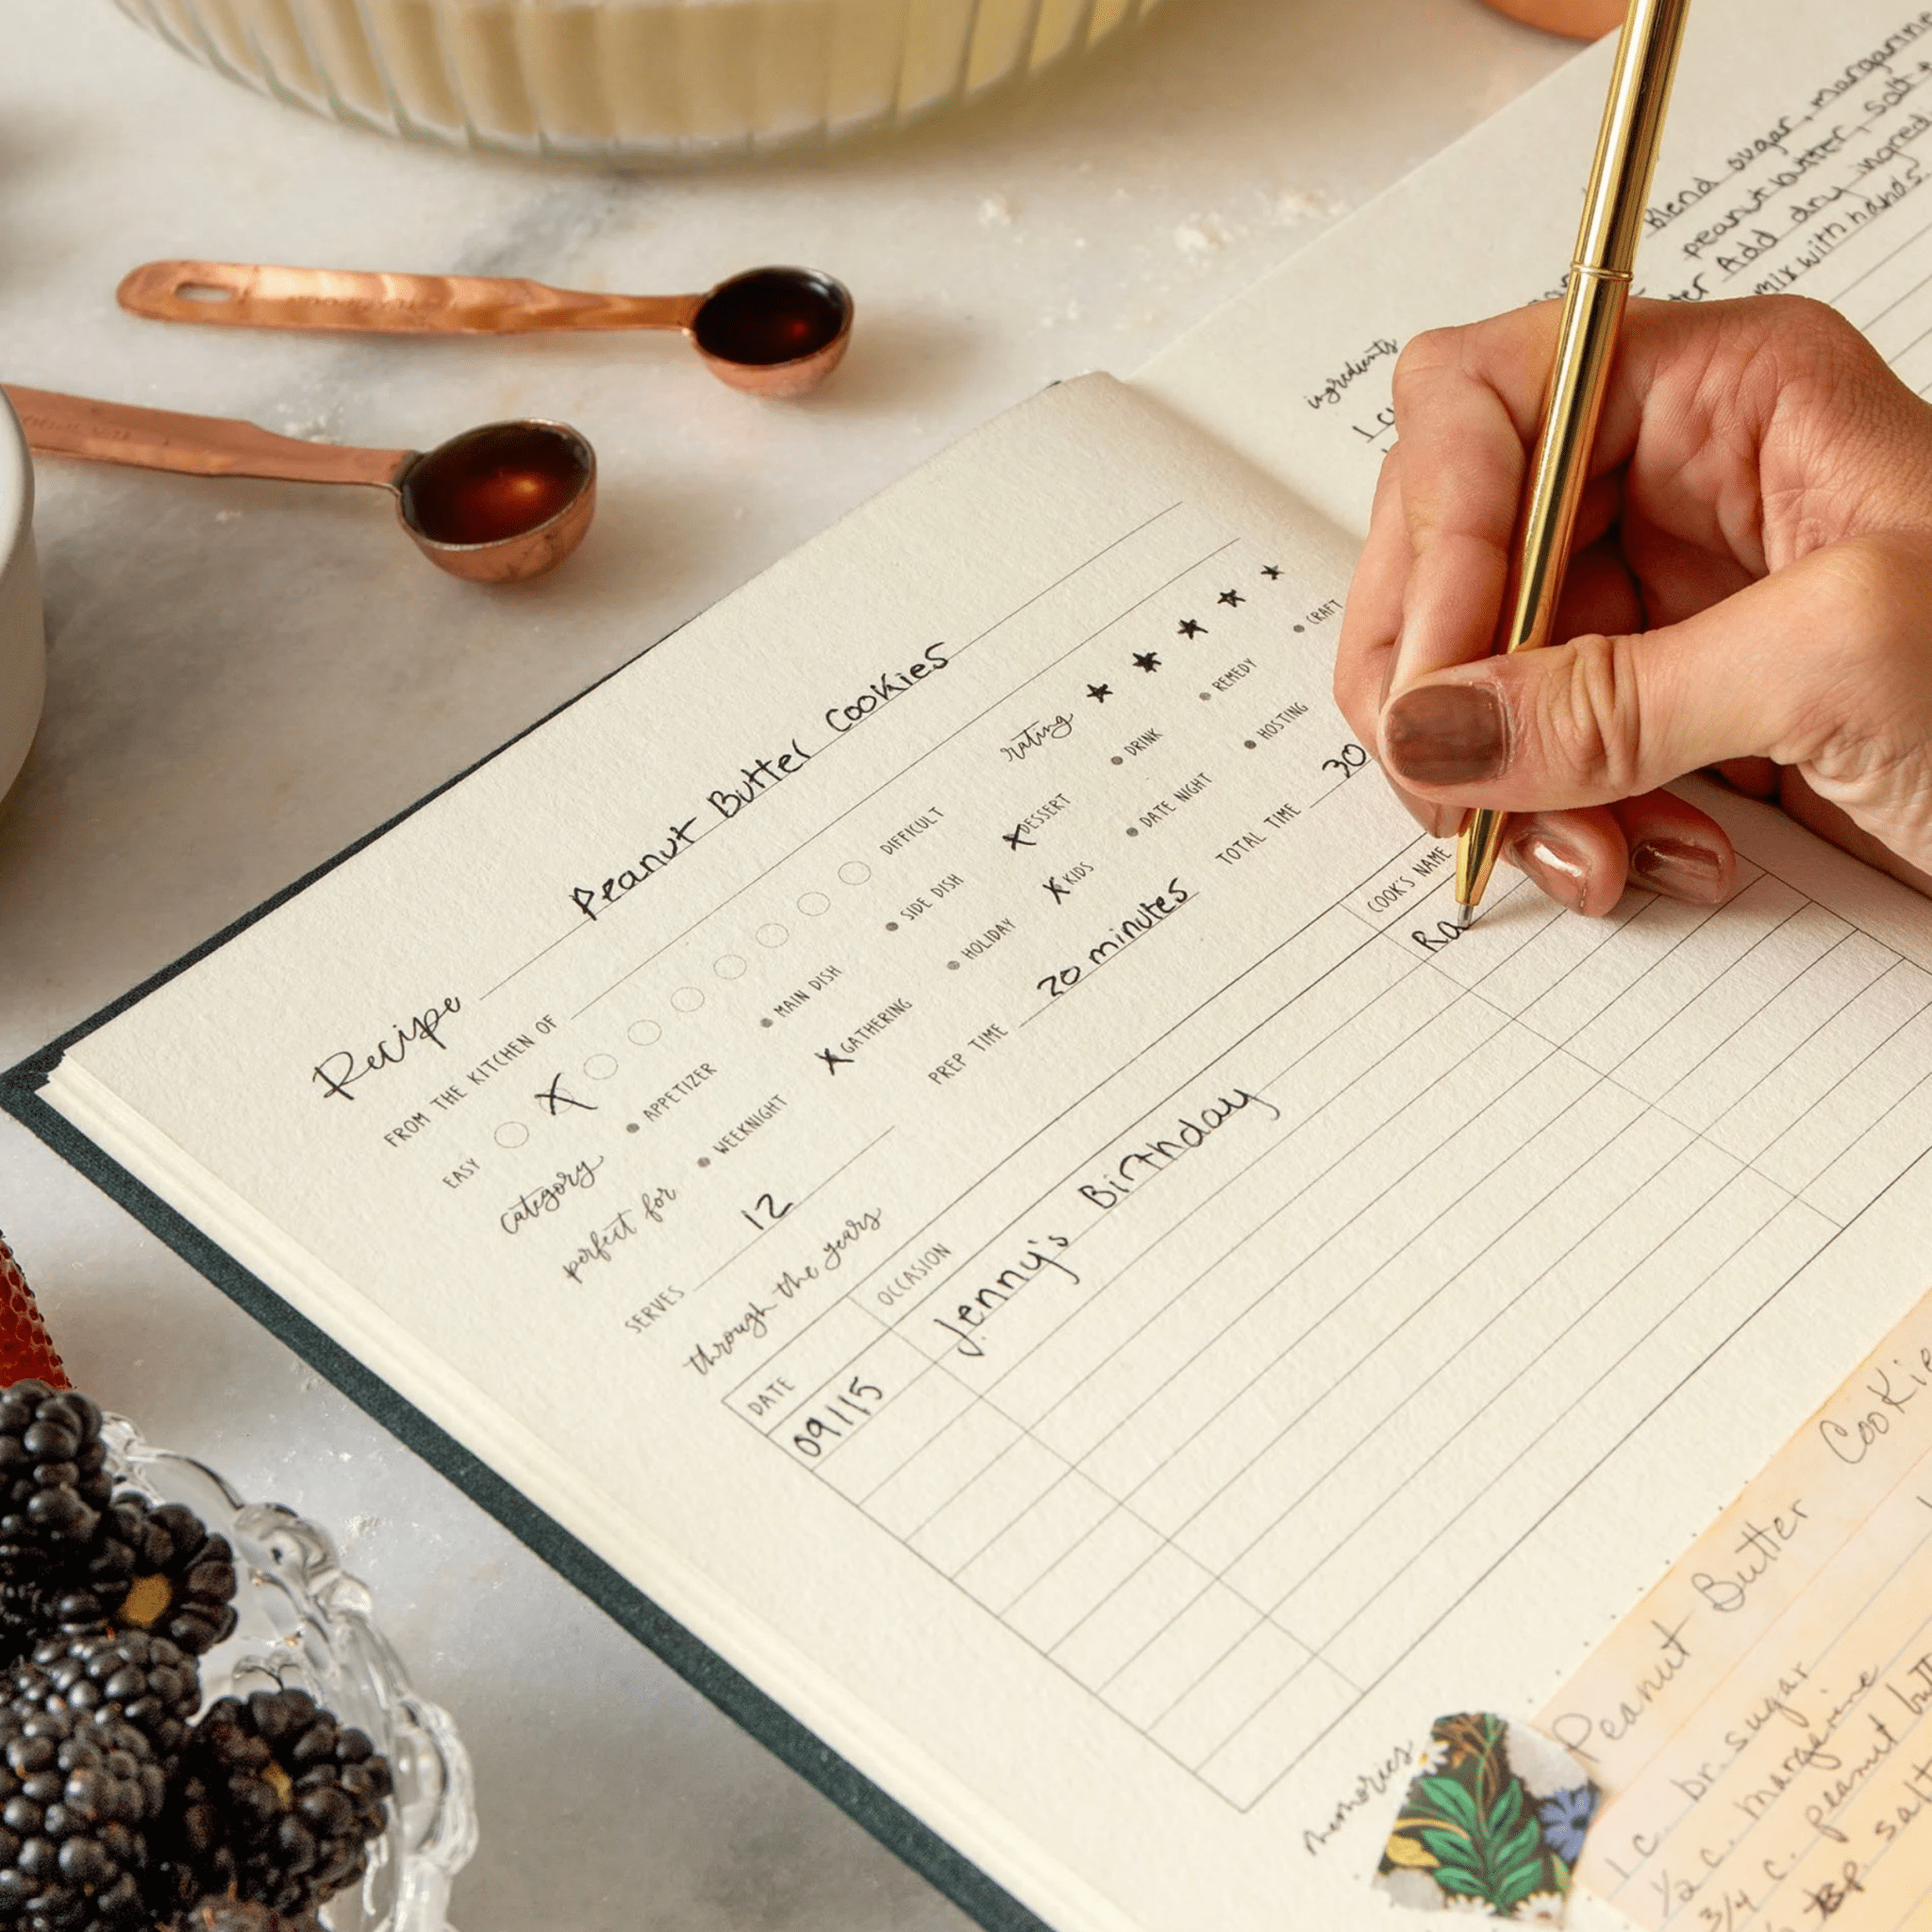 Recipe Peanut Butter Cookies
FROM THE KITCHEN OF
rating ★ ★ ★ ★ ★
EASY X DIFFICULT
category APPETIZER MAIN DISH SIDE DISH X DESSERT DRINK REMEDY CRAFT
perfect for WEEKNIGHT X GATHERING HOLIDAY X KIDS DATE NIGHT HOSTING
SERVES 12 PREP TIME 20 minutes TOTAL TIME 30
through the years
DATE OCCASION COOK'S NAME
09/15 Jenny's Birthday Ra
memories
Peanut Butter Cookie
1 c. br. sugar
1/2 c. margarine
3/4 c. peanut butt
salt
ingredients
1 cu
Blend sugar, margarine
peanut butter, salt +
Add dry ingred
mix with hands.